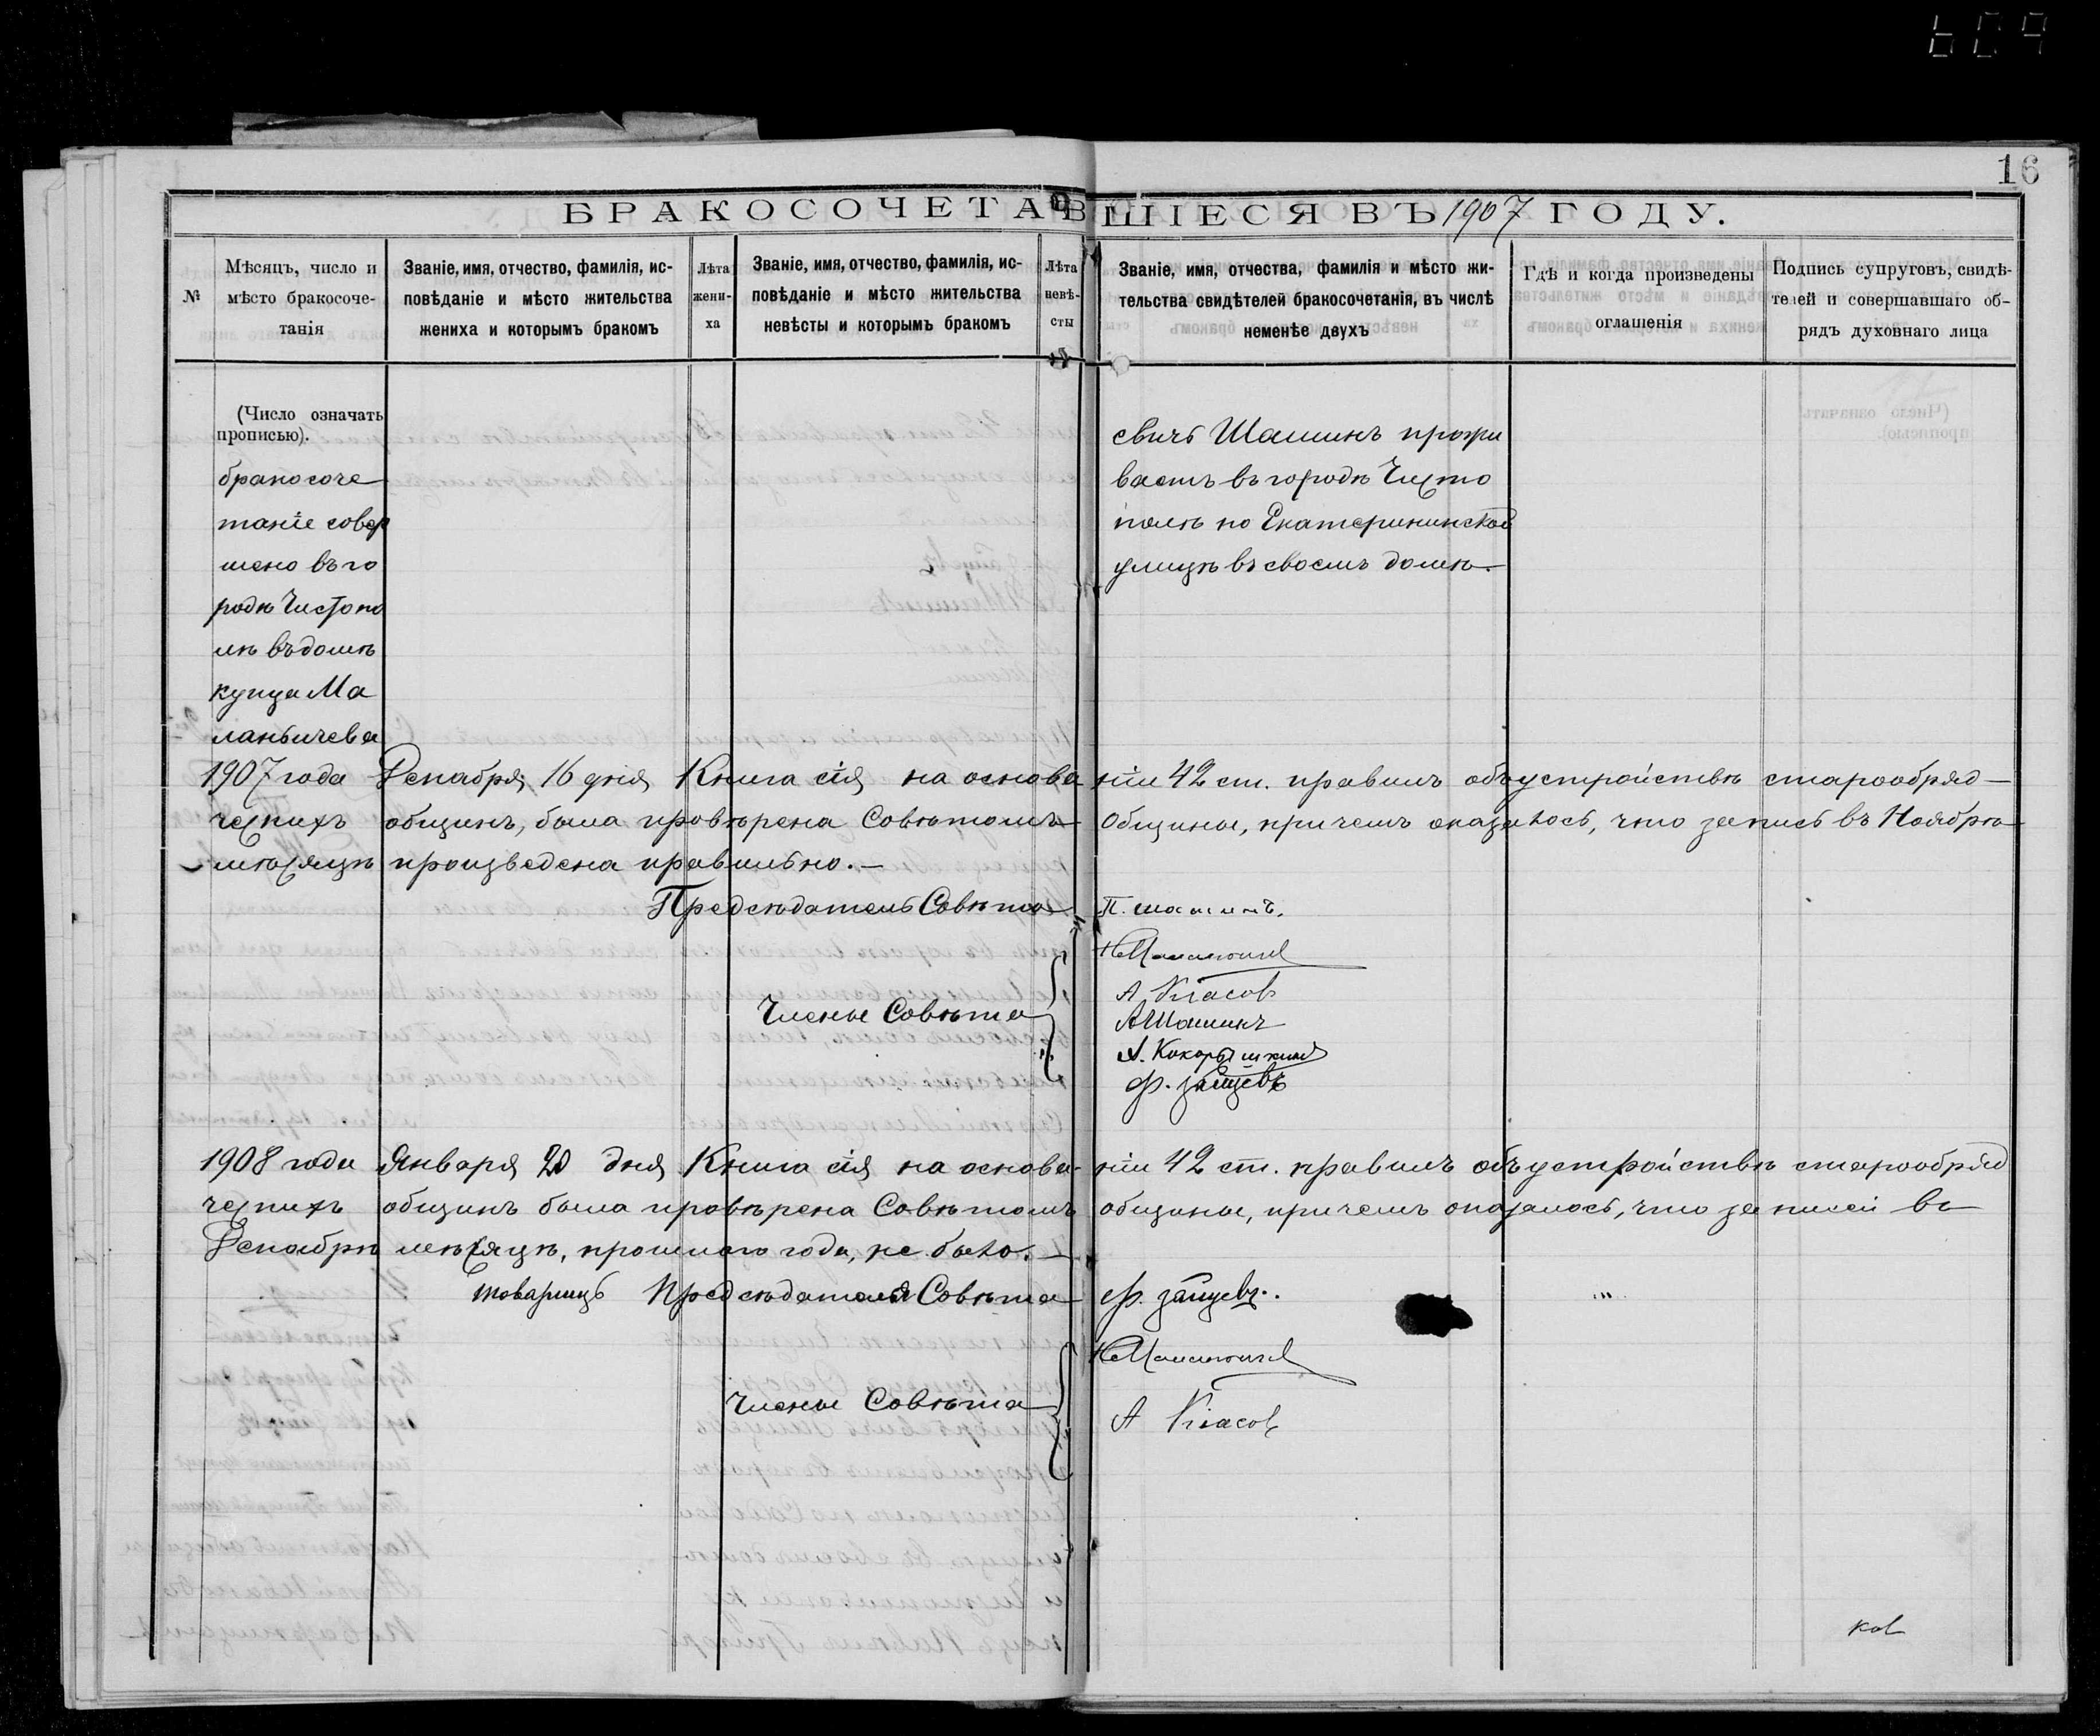 609
16
БРАКОСОЧЕТАВШІЕСЯ ВЪ 1907 ГОДУ.
№
Мѣсяцъ, число и
мѣсто бракосоче-
танія
Званіе, имя, отчество, фамилія, ис-
повѣданіе и мѣсто жительства
жениха и которымъ бракомъ
Лѣта
жени-
ха
Званіе, имя, отчество, фамилія, ис-
повѣданіе и мѣсто жительства
невѣсты и которымъ бракомъ
Лѣта
невѣ-
сты
Званіе, имя, отчества, фамилія и мѣсто жи-
тельства свидѣтелей бракосочетанія, въ числѣ
неменѣе двухъ
Гдѣ и когда произведены
оглашенія
Подпись супруговъ, свидѣ-
телей и совершавшаго об-
рядъ духовнаго лица
(Число означать
прописью).
бракосоче
таніе совер
шено въ го
родѣ Чистопо
лѣ въ домѣ
купца Ма
ланьичева
свичъ Шашинъ прожи
ваетъ въ городѣ Чисто
полѣ по Екатерининской
улицѣ въ своемъ домѣ.
1907 года Декабря 16 дня Книга сія на основа ніи 42 ст. правилъ объ устройствѣ старообряд-
ческихъ общинъ, была провѣрена Совѣтомъ Общины, причемъ оказалось, что запись въ Ноябрѣ
мѣсяцѣ произведена правильно.—
Предсѣдатель Совѣта П. Шашинъ.
Члены Совѣта
А Класовъ
АШашинъ
А. Кокорышкинъ
Ф. Зайцевъ
1908 года Января 20 дня Книга сія на основа- ніи 42 ст. правилъ объ устройствѣ старообряд
ческихъ общинъ была провѣрена Совѣтомъ общины, причемъ оказалось, что записей въ
Декабрѣ мѣсяцѣ, прошлаго года, не было.—
Товарищъ Предсѣдателя Совѣта Ф. Зайцевъ.
Члены Совѣта
А Класовъ
ков